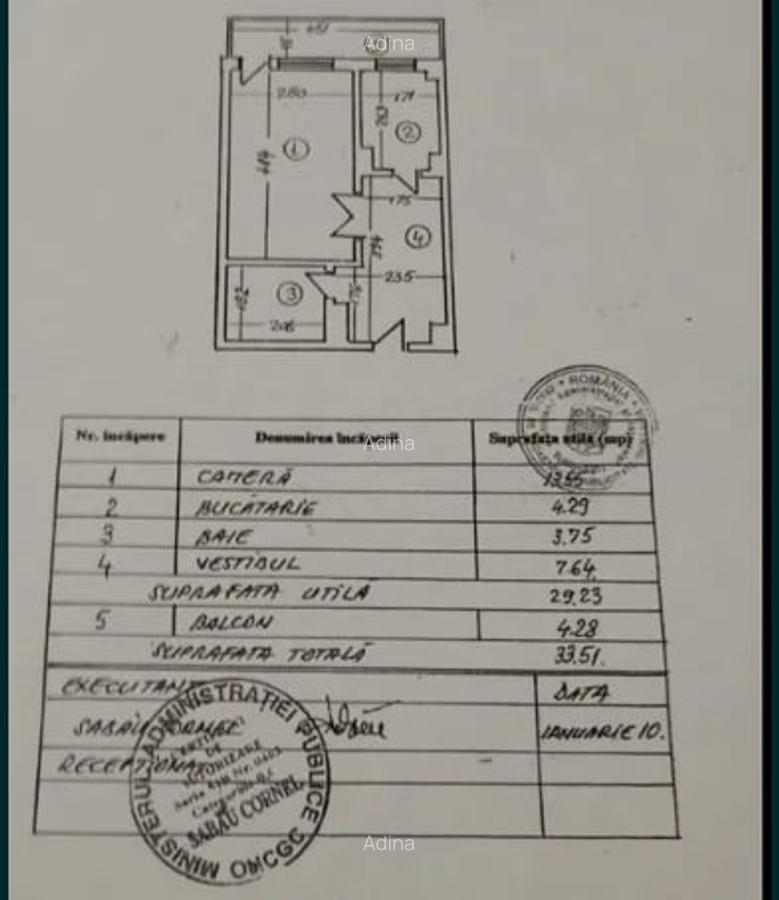 451
Adina
280
171
263
484
1
2
175
4
394
235
3
182
176
206
ROMÂNIA
Nr. încăpere Denumirea încăperii Suprafaţa utilă (mp)
Adina
1 CAMERĂ 13.55
2 BUCĂTARIE 4.29
3 BAIE 3.75
4 VESTIBUL 7.64
SUPRAFATA UTILĂ 29.23
5 BALCON 4.28
SUPRAFATA TOTALĂ 33.51.
EXECUTANT DATA
SABĂU CORNEL IANUARIE 10.
RECEPTIONAT
MINISTERUL ADMINISTRAŢIEI PUBLICE
DE
AUTORIZARE
SABĂU CORNEL
ONCGC
Adina